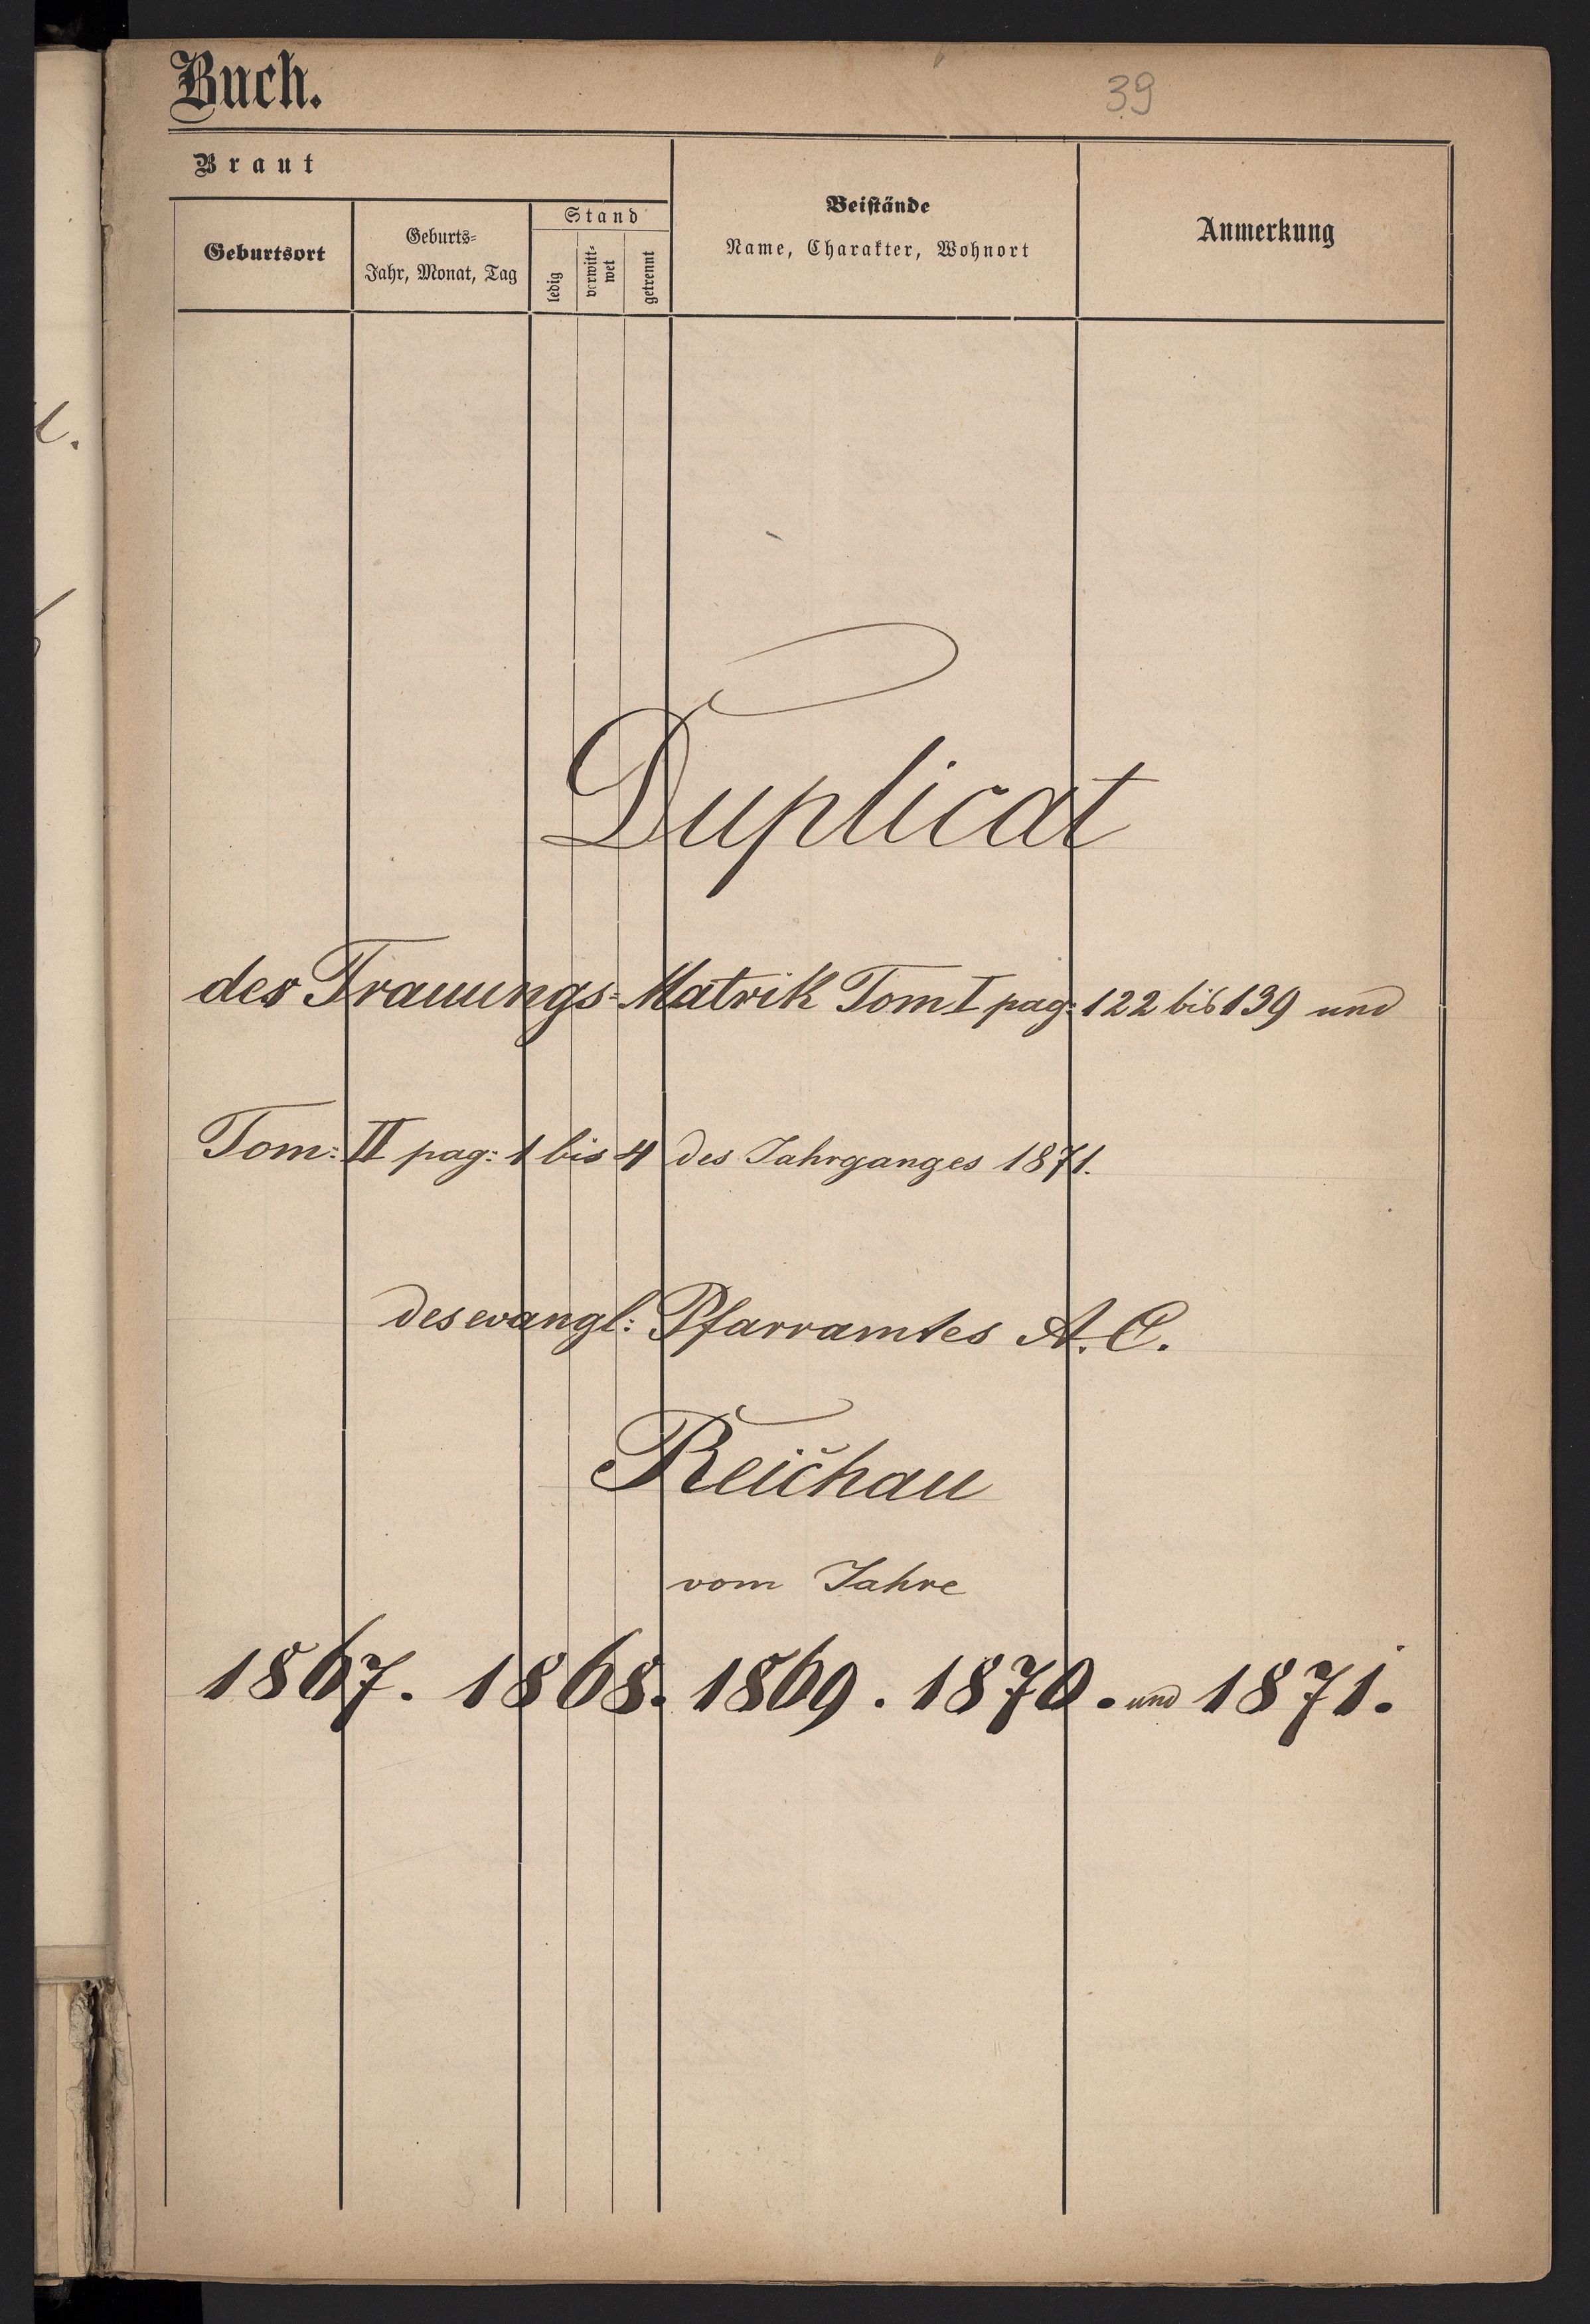 Buch.
39
Braut
Geburtsort
Geburts-
Jahr, Monat, Tag
Stand
ledig
verwitt-
wet
getrennt
Beistände
Name, Charakter, Wohnort
Anmerkung
Duplicat
der Trauungs-Matrik Tom I pag: 122 bis 139 und
Tom: II pag: 1 bis 4 des Jahrganges 1871.
des evangl: Pfarramtes A. C.
Reičhau
vom Jahre
1867. 1868. 1869. 1870. und 1871.